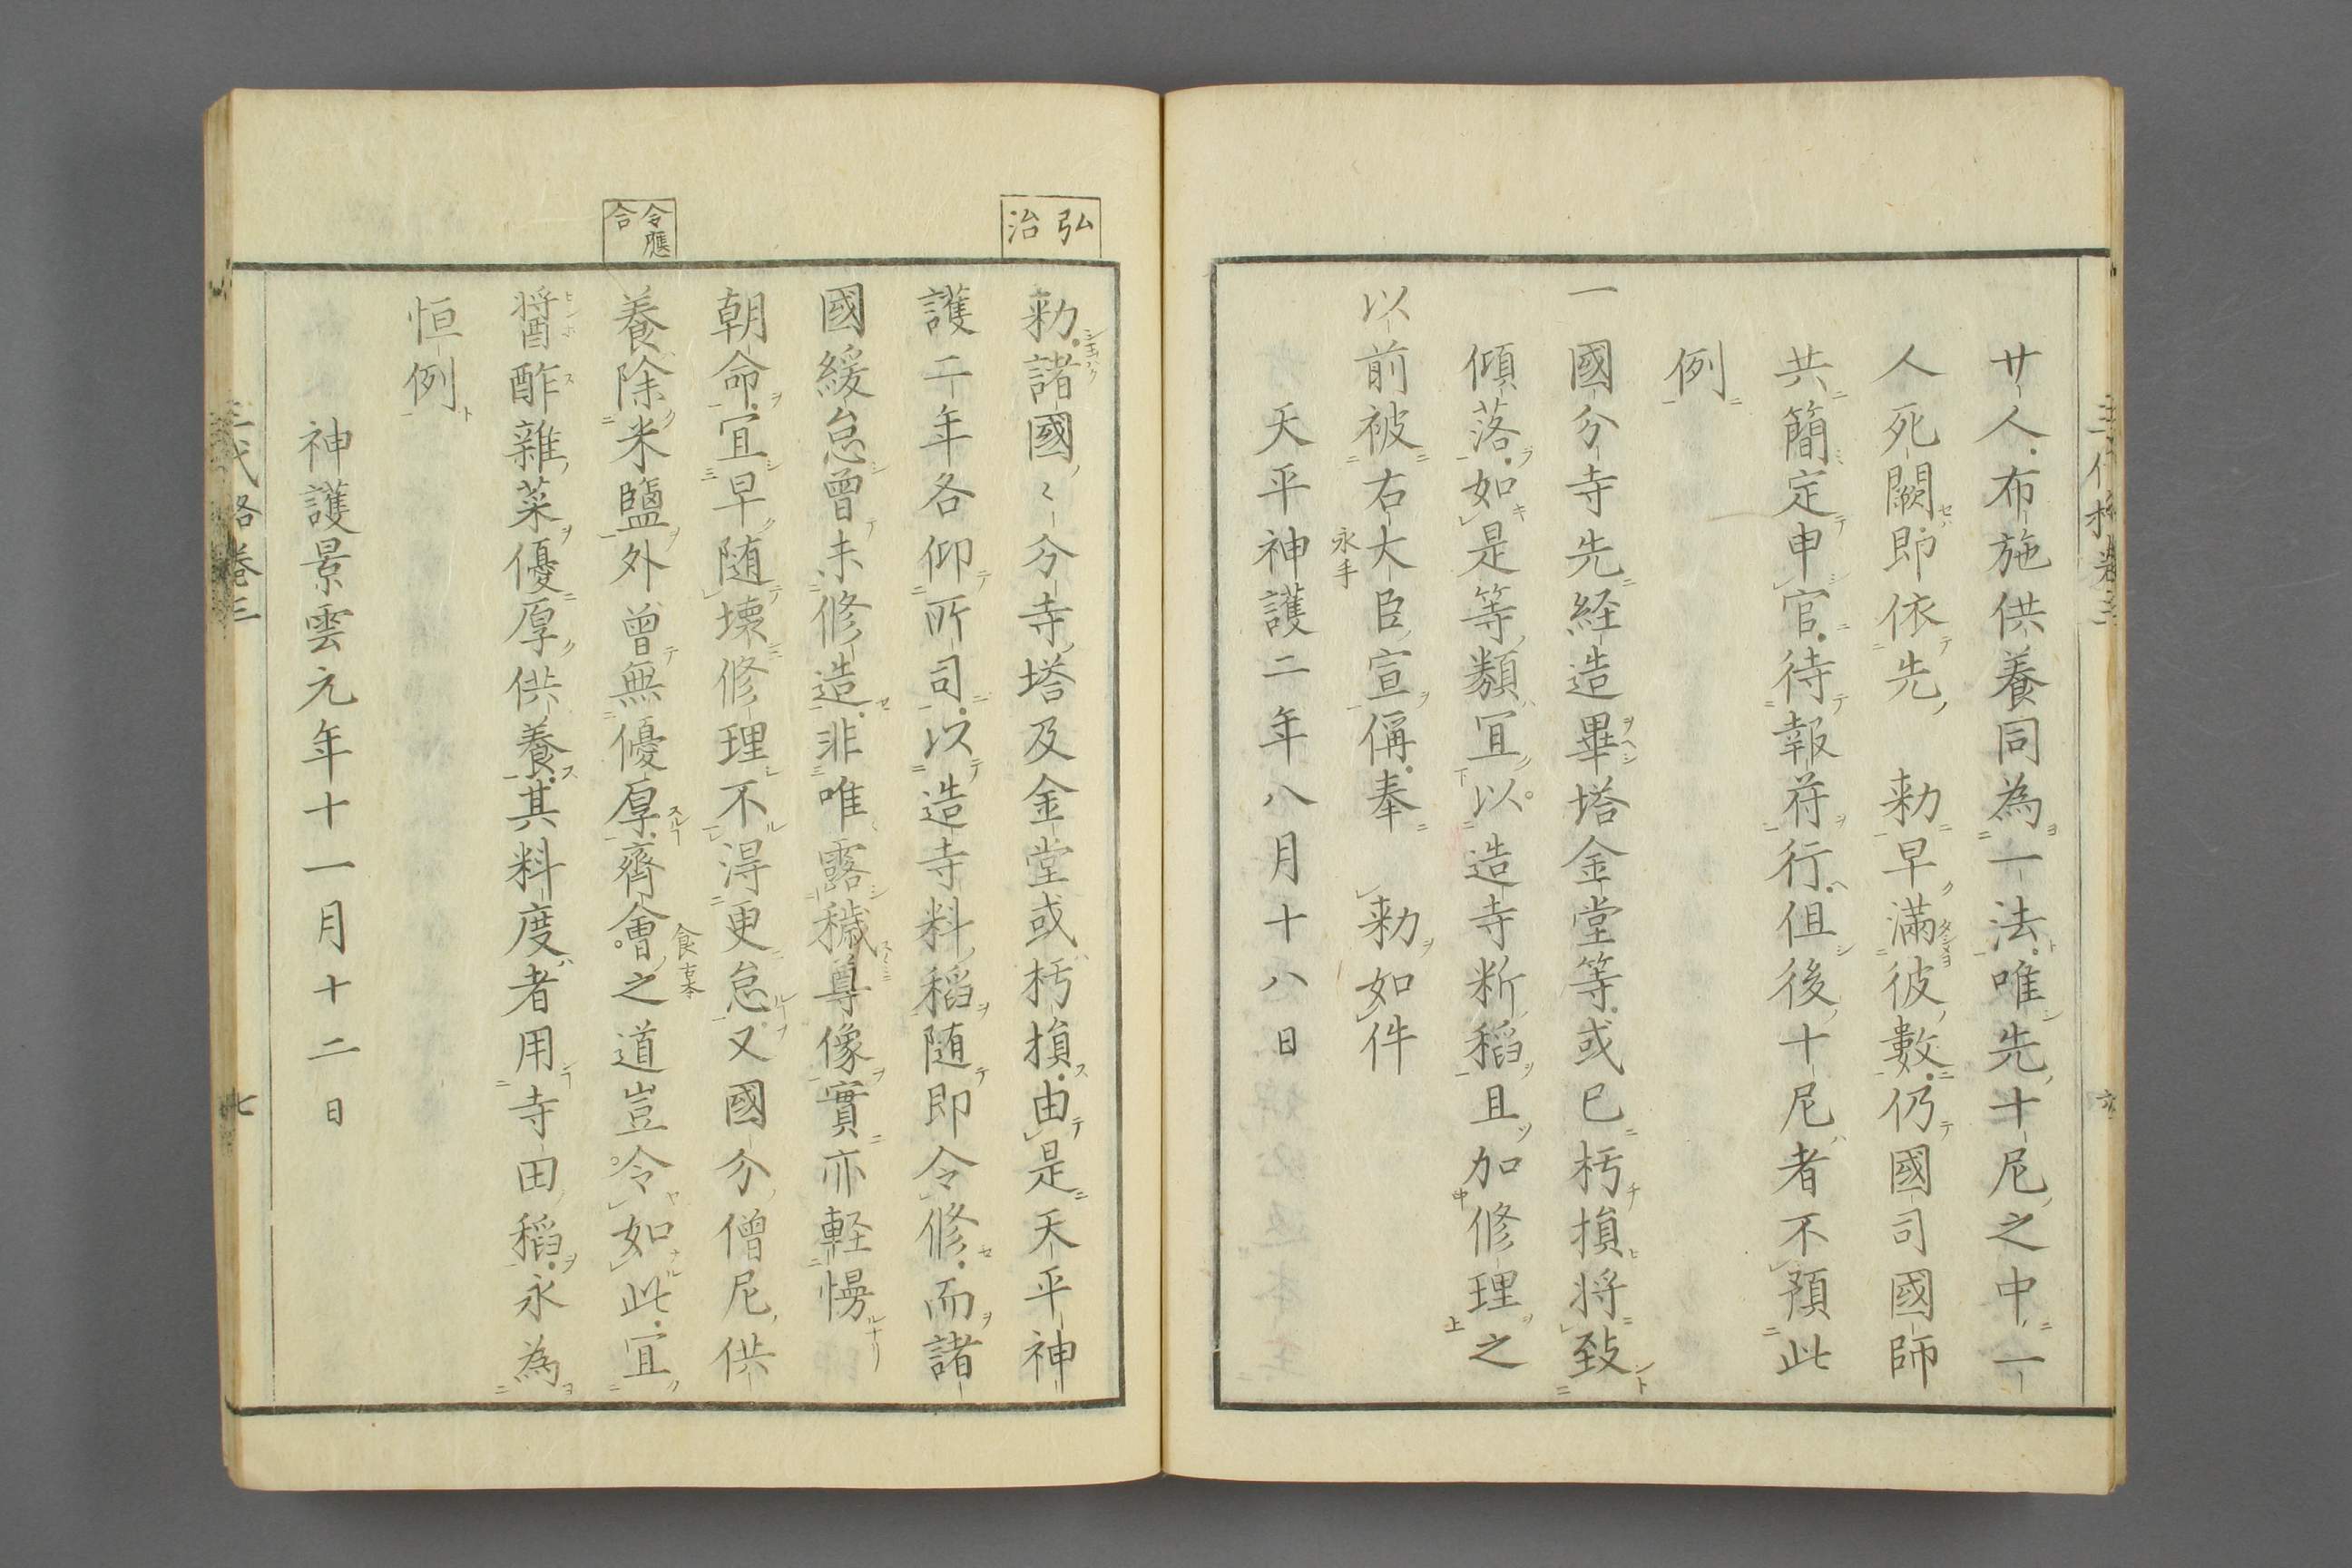 廿人布施供養同為一法唯先十尼之中一
人死闕即依先　勅早滿彼數仍國司國師
共簡定申官待報符行但後十尼者不預此
例
一國分寺先経造畢塔金堂等或已朽損將致
傾落如是等類宜以造寺断稻且加修理之
以前被右大臣宣偁奉　勅如件
永手
天平神護二年八月十八日
弘治
勅諸國〻分寺塔及金堂或朽損由是天平神
護二年各仰所司以造寺料稻随即令修而諸
國緩怠曾未修造非唯露穢尊像實亦軽慢
朝命宜早随壊修理不得更怠又國分僧尼供
令應合
養除米鹽外曾無優厚齊會之道豈令如此宜
食本
醬酢雜菜優厚供養其料度者用寺田稻永為
恒例
神護景雲元年十一月十二日
三代格卷三
七